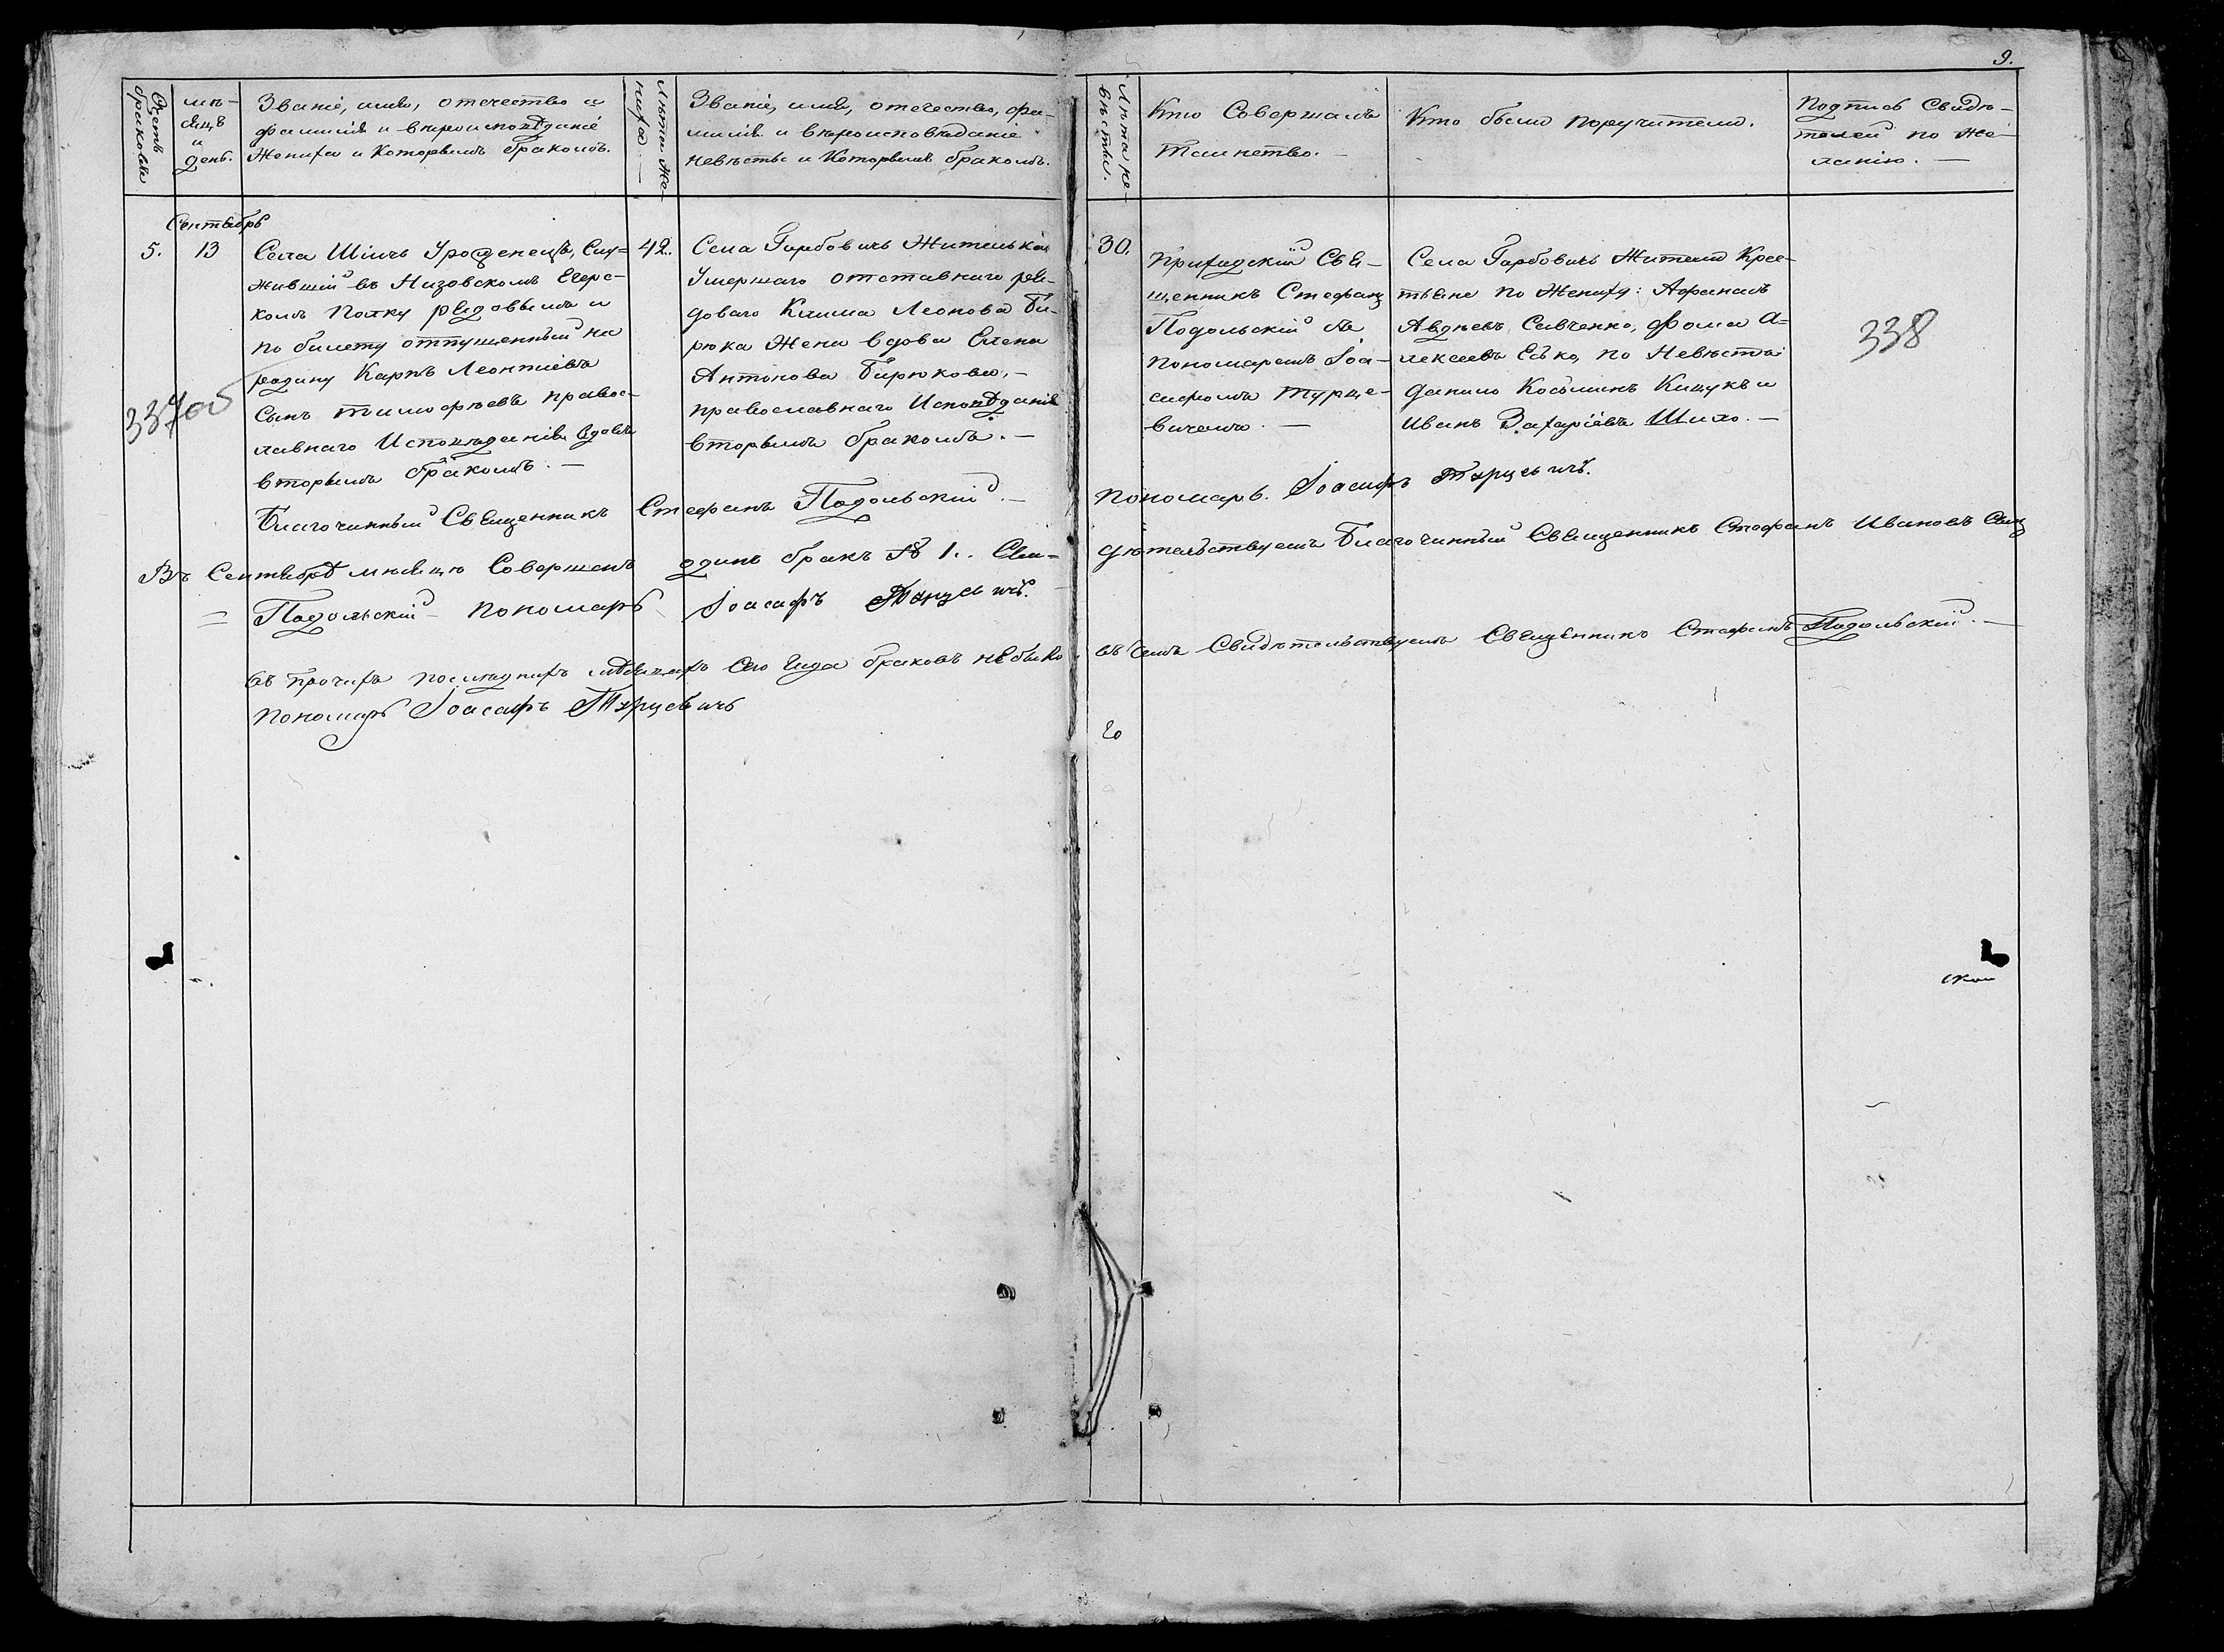 9.
Счетъ браковъ
мѣ-
сяцъ
и
день.
Званіе, имя, отечество и
фамилія и вѣроисповѣданіе
Жениха и Которымъ бракомъ.
Лѣта Же-
ниха. —
Званіе, имя, отечество, фа-
милія и вѣроисповѣданіе
невѣсты и Которымъ бракомъ.
Лѣта не-
вѣсты.
Кто Совершалъ
Таинство. —
Кто были Поручители.
Подпись Свидѣ-
телей по же-
ланію. —
Сентябрь
5.
13
Села Уроженецъ, Слу=
жившій въ Низовскомъ Егерс-
комъ Полку рядовымъ и
по билету отпущенный на
родину Карпъ Леонтіевъ
Сынъ Тимофѣевъ правос-
лавнаго Исповѣданія вдовъ
вторымъ бракомъ. —
42.
Села Горбовичъ Жителька
Умершаго отставнаго ря-
доваго Клима Леонова Би-
рюка Жена вдова Елена
Антонова Бирюкова, —
православнаго Исповѣданія
вторымъ бракомъ. —
30.
Приходскій Свя-
щенникъ Стефанъ
Подольскій съ
пономаремъ Іоа-
сафомъ Турце-
вичемъ. —
Села Горбовичъ Жители Крес-
тьяне по Женихѣ: Афанасъ
Авдѣевъ Савченко, Фома А=
лексеевъ Есько, по Невѣстѣ
Данило Косьминъ и
Иванъ Захаріевъ Шило. —
337об
338
Благочинный Священникъ Стефанъ Подольскій. —
Пономарь. Іоасафъ Турцевичъ.
Въ Сентябрѣ мѣсяцѣ Совершенъ одинъ бракъ № 1. Сви=
дѣтельствуемъ Благочинный Священникъ Стефанъ Ивановъ Сынъ
= Подольскій — Пономарь Іоасафъ Турцевичъ. —
въ прочихъ послѣднихъ мѣсяцахъ Сего года браковъ небыло. въ чемъ Свидѣтельствуемъ Священникъ Стефанъ Подольскій. —
Пономарь Іоасафъ Турцевичъ